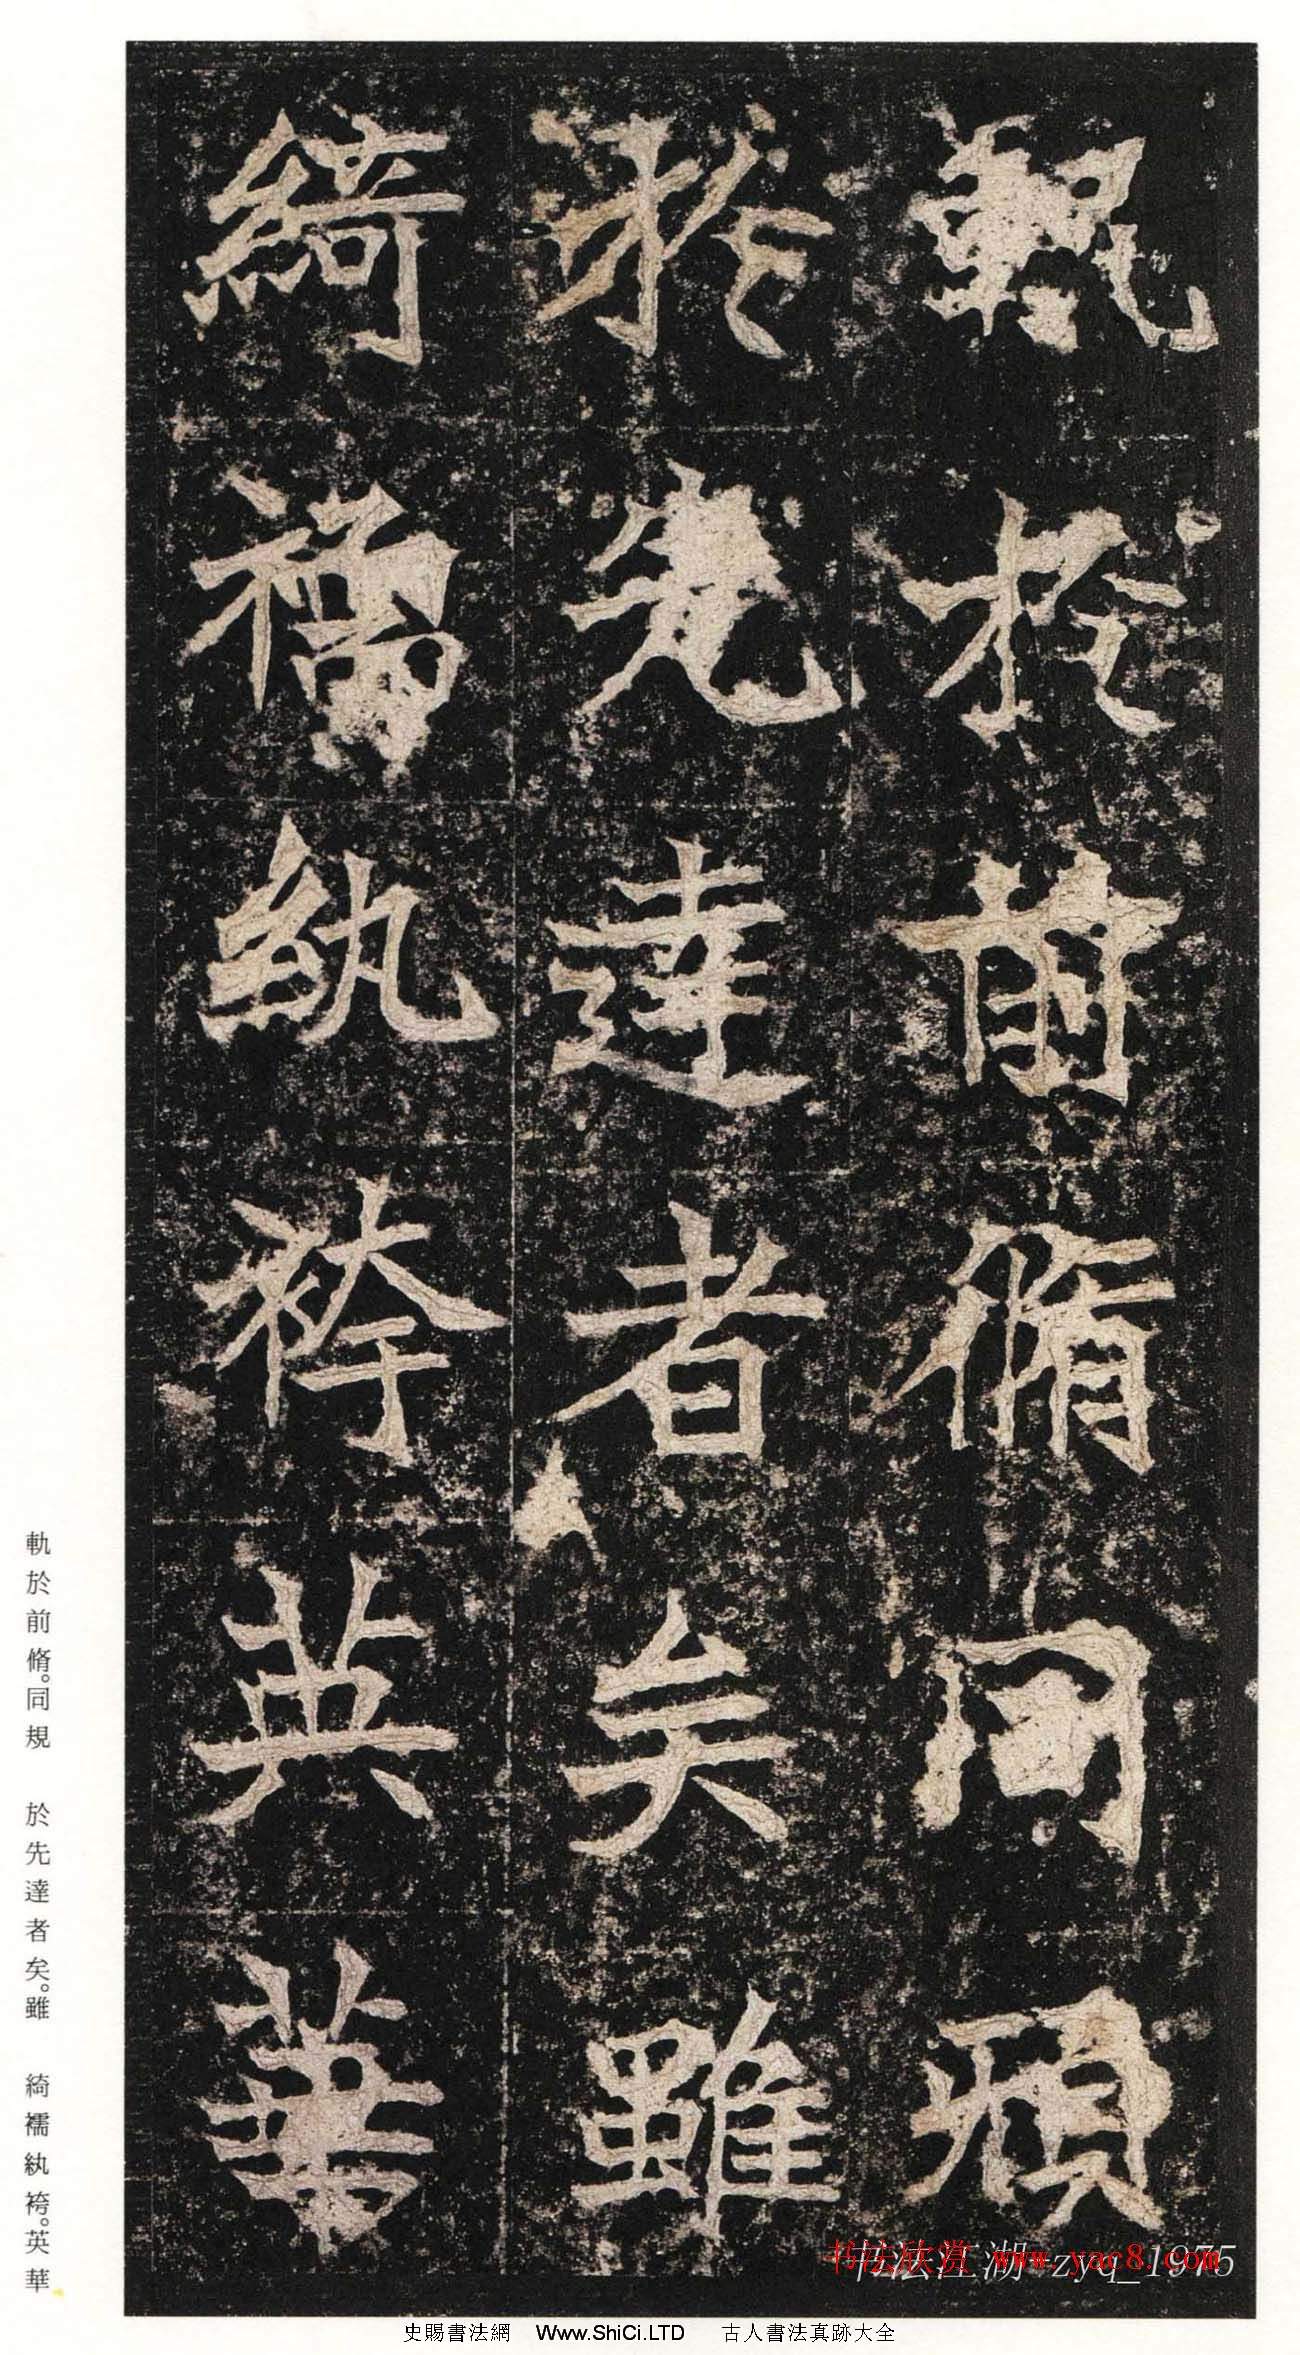 軌於前脩同規
於先達者矣雖
綺襦紈袴英華
軌於前脩。同規　於先達者矣。雖　綺襦紈袴。英華
书法欣赏 www.yac8.com
书法江湖 zyq_1975
史賜書法網 Www.ShiCi.LTD 古人書法真跡大全